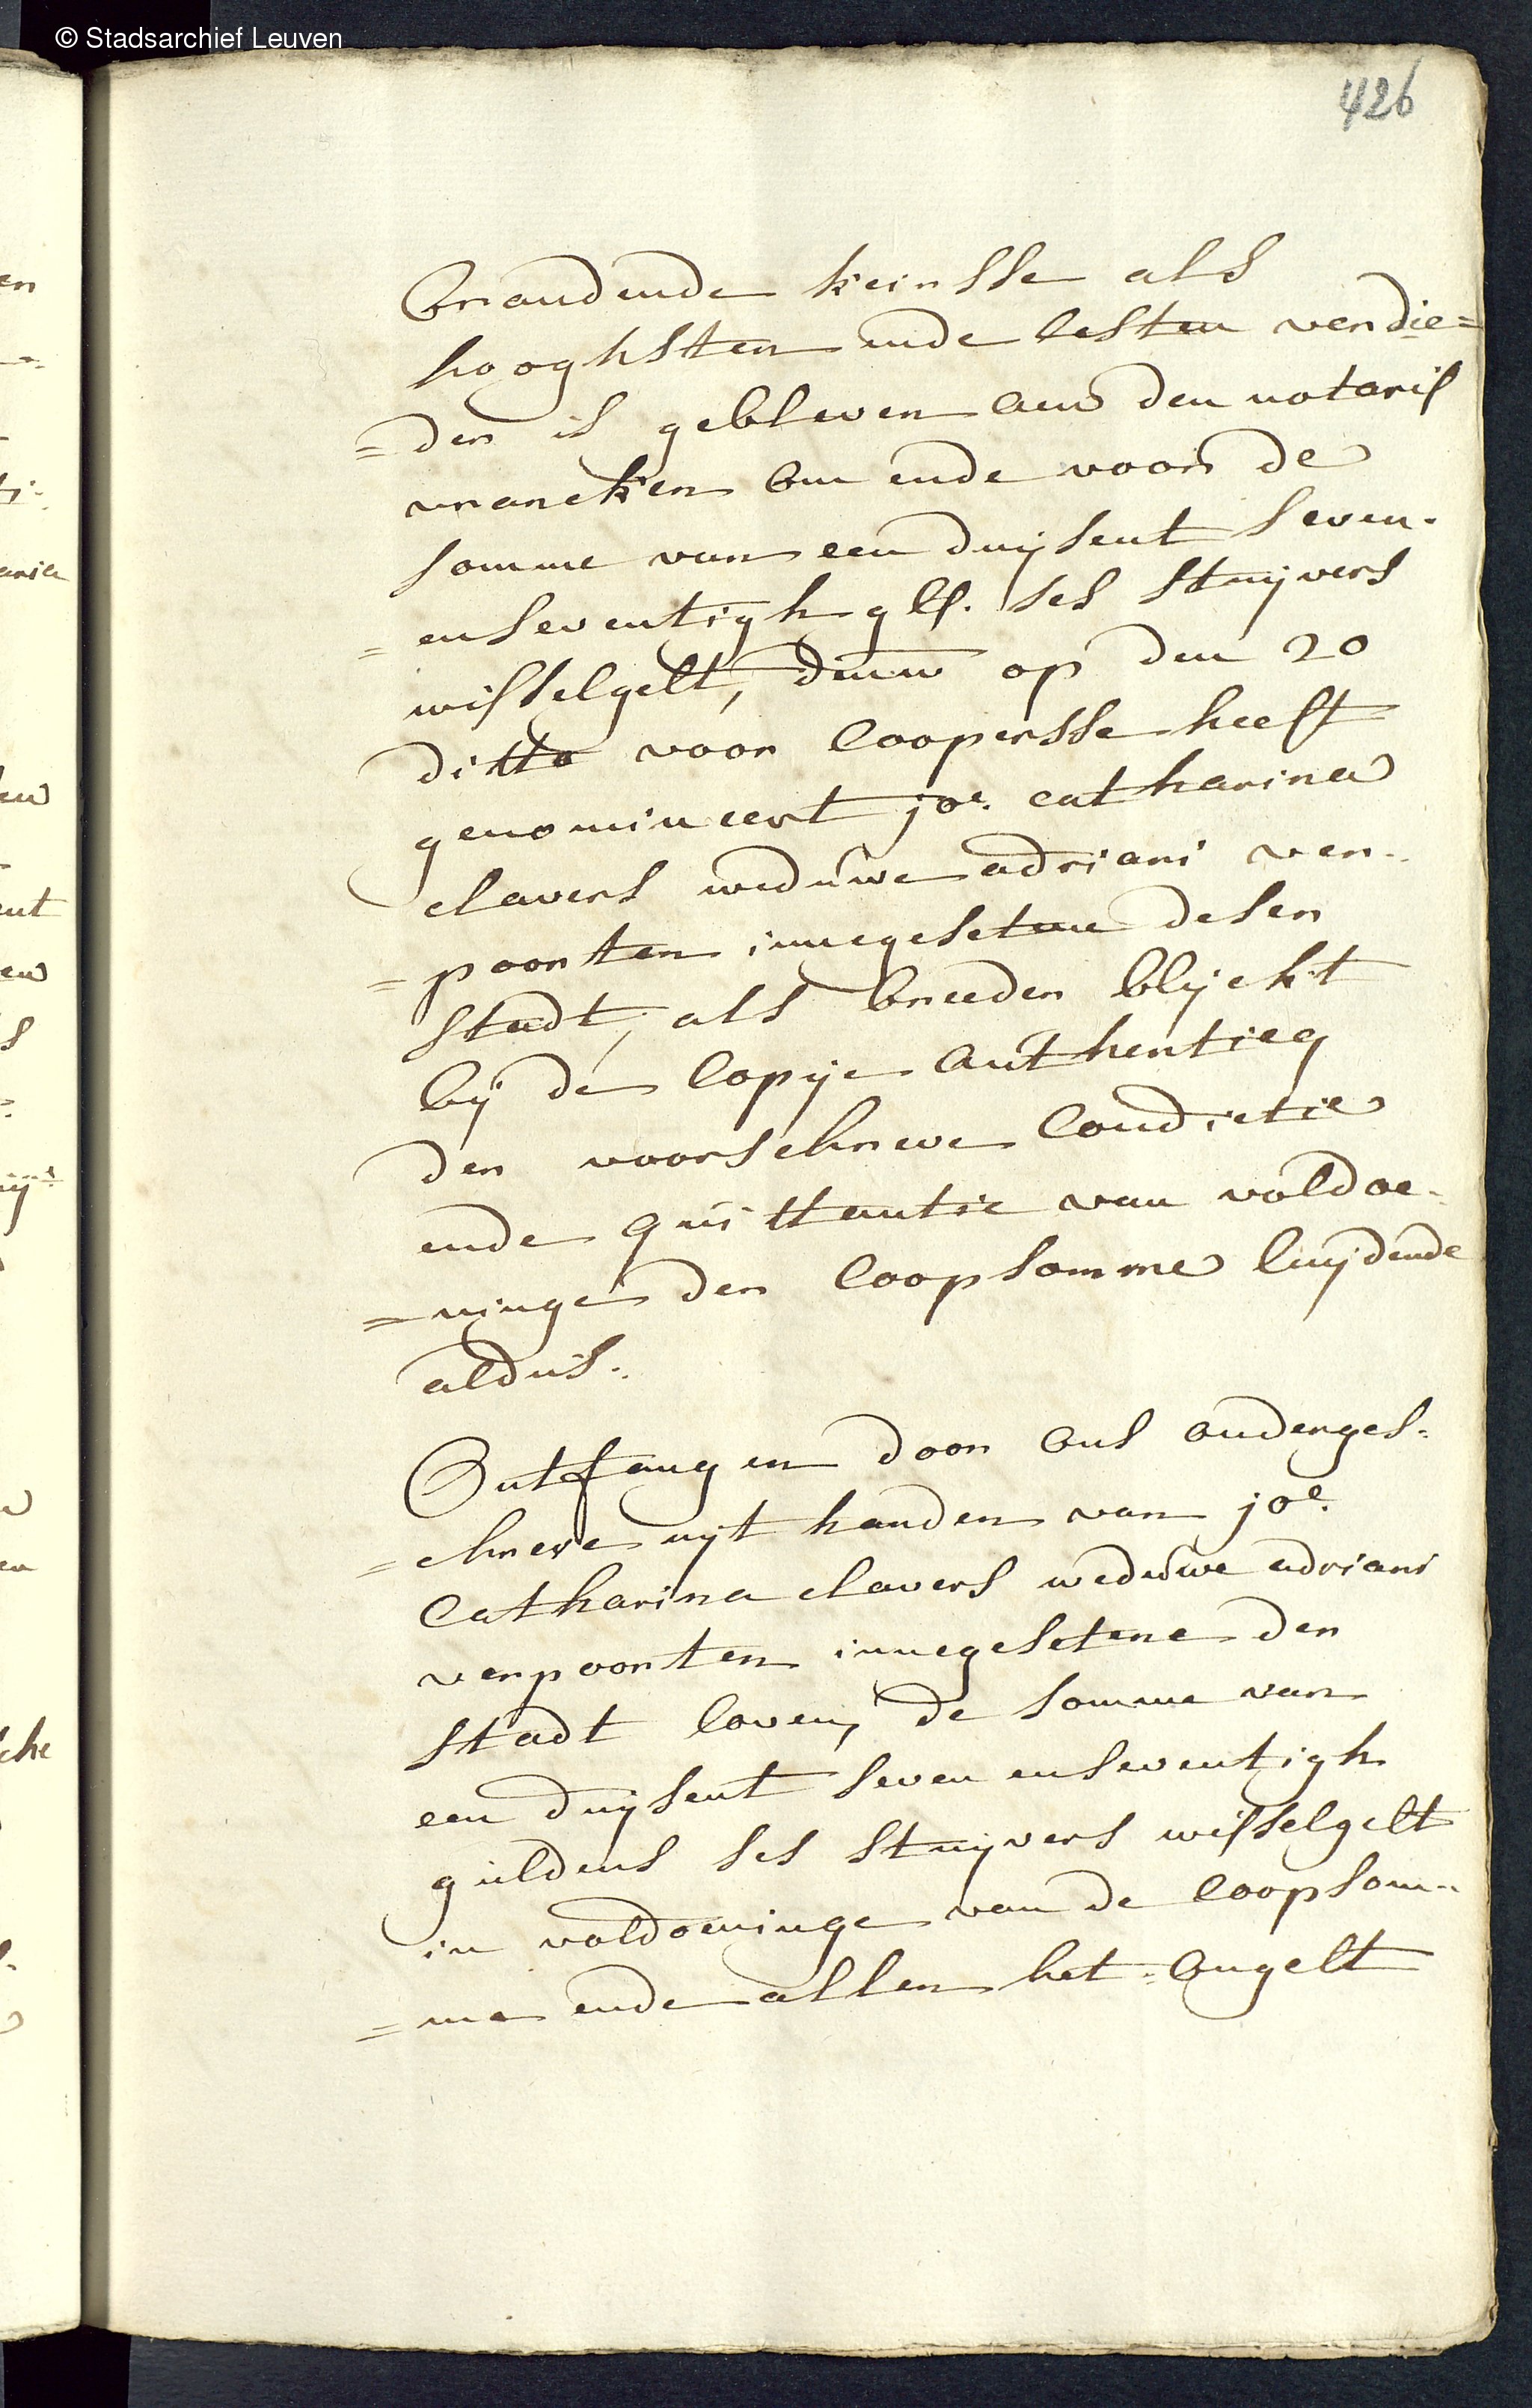 © Stadsarchief Leuven
426
brandende keirsse als
hooghsten ende lesten verdie=
=der is gebleven aen den notaris
vrancken om ende voor de
somme van een duysent seven-
=enseventigh gls. ses stuyvers
wisselgelt, denw op den 20
ditto voor coopersse heeft
genomineert joe. catharina
clavers weduwe adriani ver-
=poorten innegesetene deser
stadt, als breeder blyckt
by de copye authenticq
der voorschreve condietie
ende quittantie van voldoe-
=ninge der coopsomme luydende
aldus.
Ontfangen door ons onderges-
=chreve uyt handen van joe.
catharina clavers weduwe adriani
verpoorten innegesetene der
stadt loven, de somme van
een duysent seven enseventigh
guldens ses stuyvers wisselgelt
in voldoeninge van de coopsom-
=me ende allen het ongelt